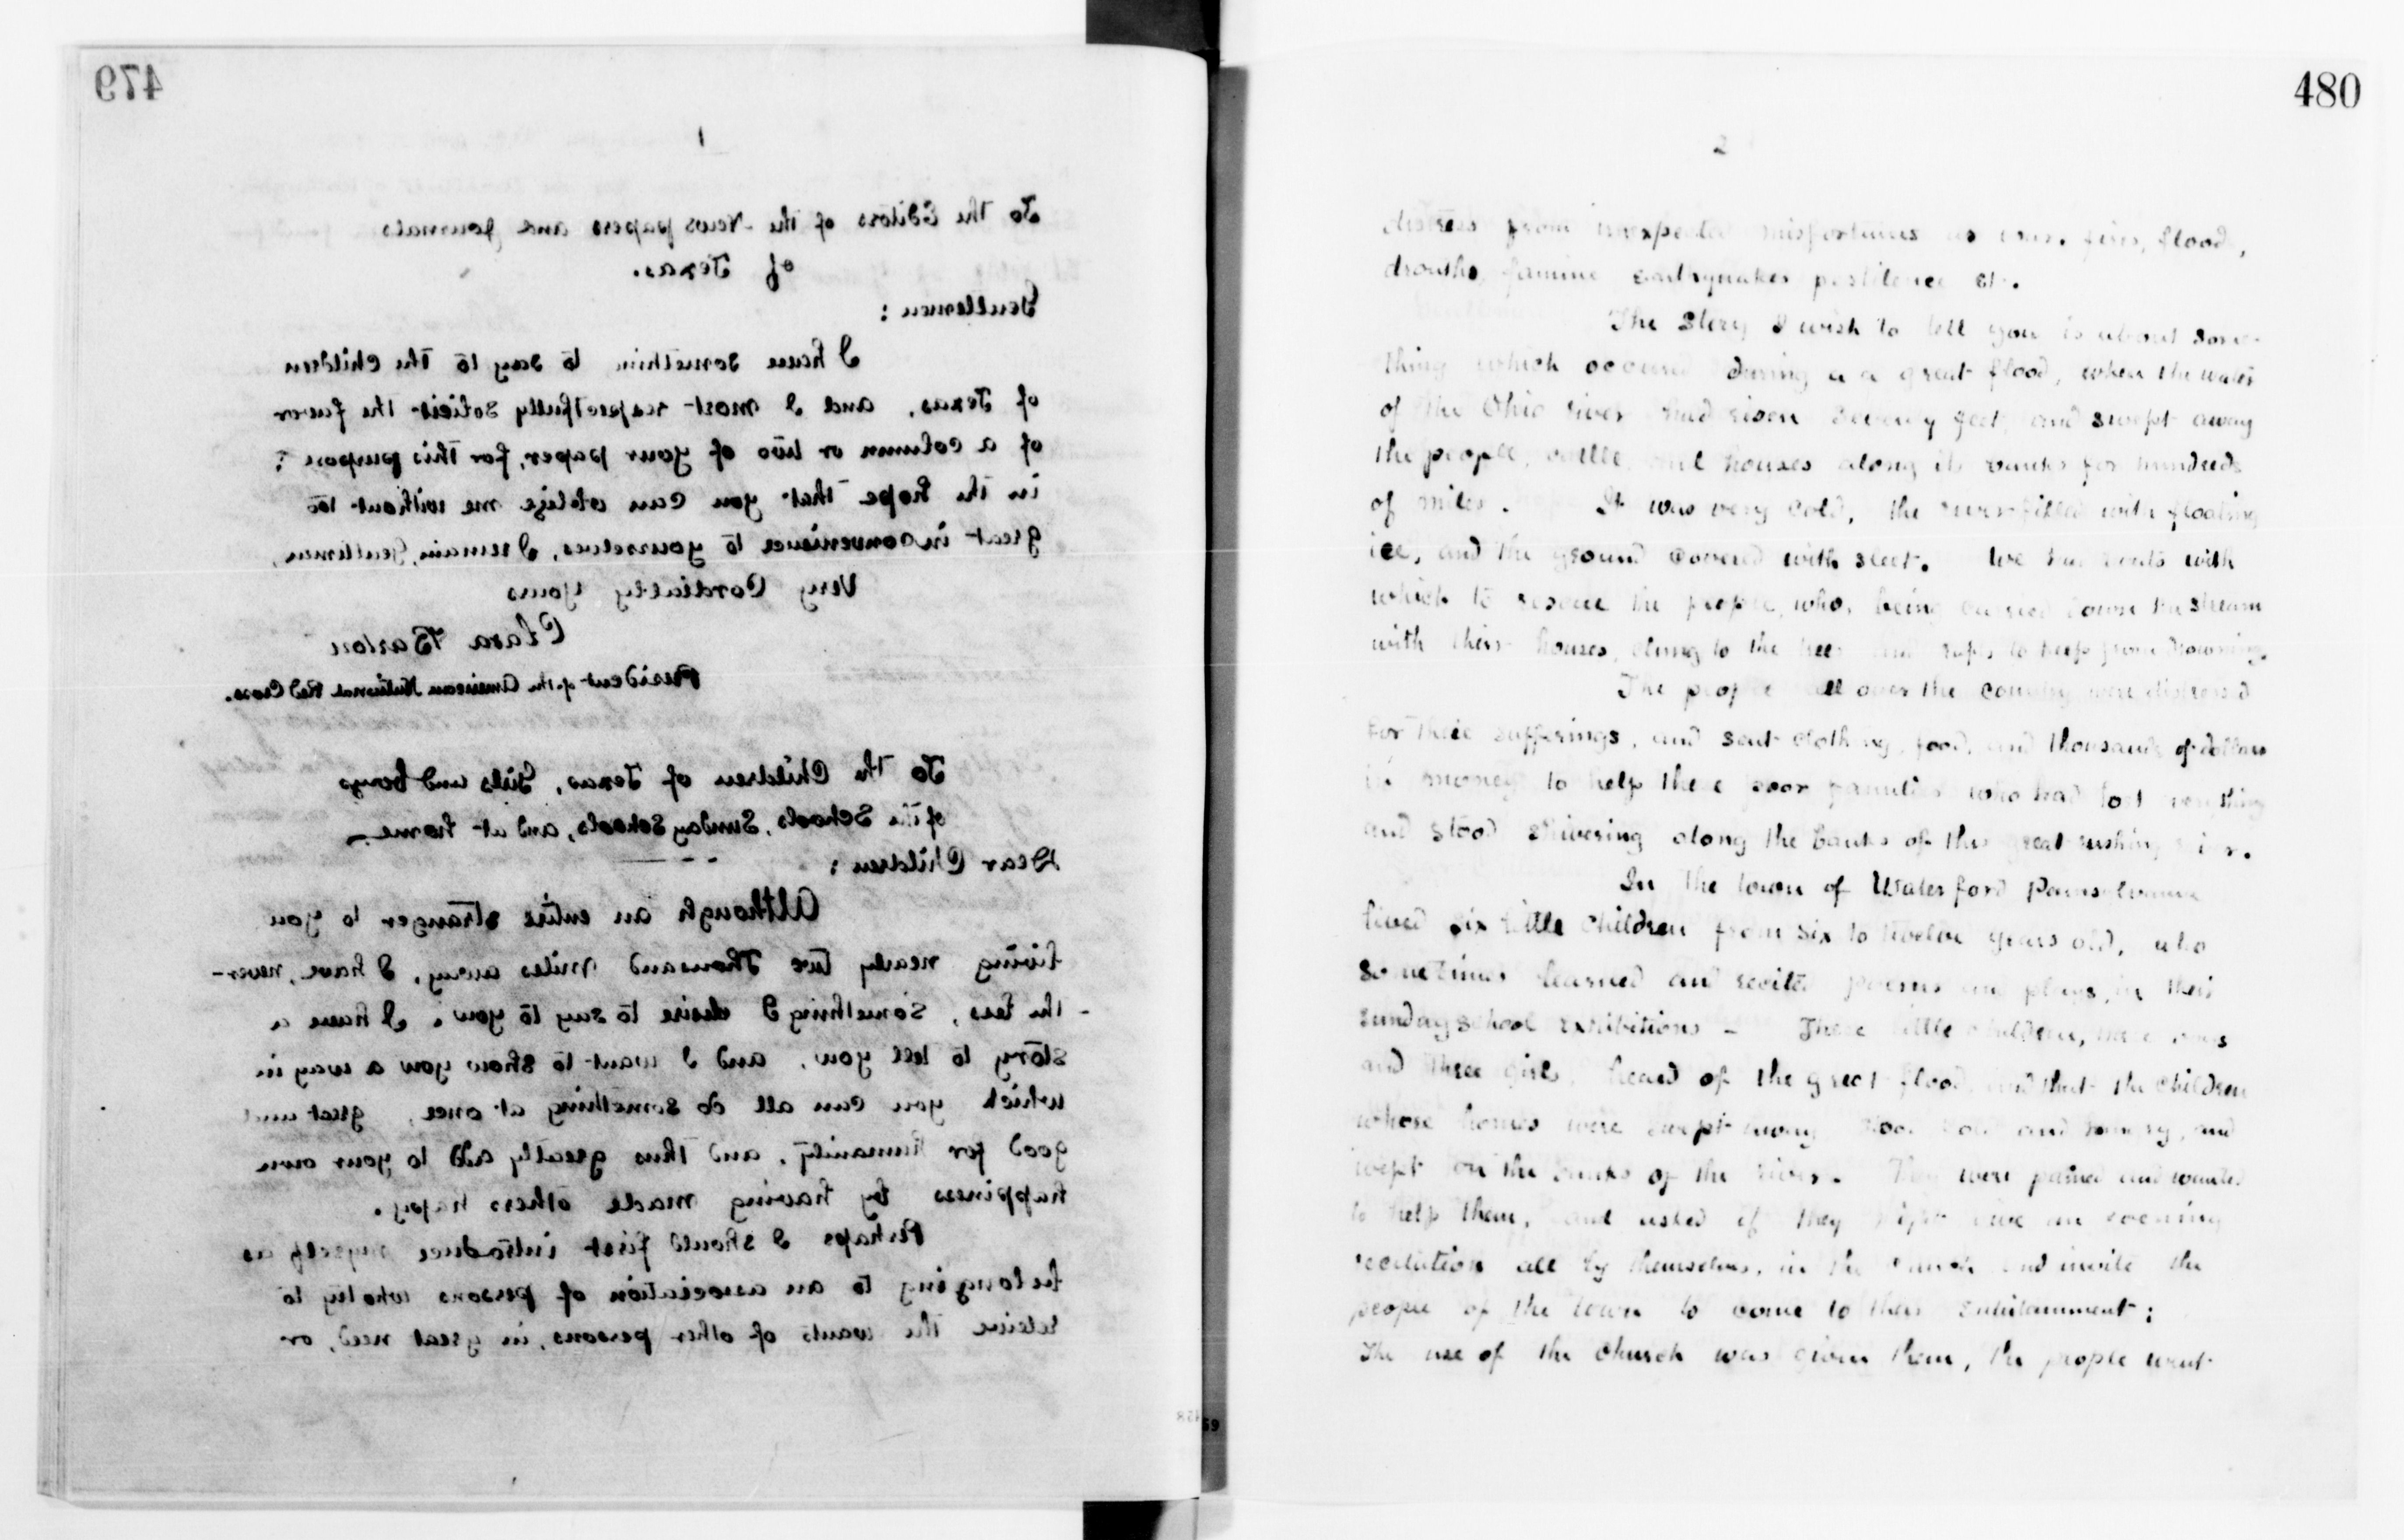 479
1
To the Editors of the News papers and Journals
of Texas.
Gentlemen:
I have somethin to say to the children
of Texas, and I most respectfully solicit the favor
of a column or two of your paper, for this purpose;
in the hope that you can oblige me without too
great inconvenience to yourselves, I remain, Gentlemen,
Very Cordially yours
Clara Barton
President of the American National Red Cross.
To the Children of Texas, Girls and boys
of the Schools, Sunday Schools, and at home —
Dear Children:
Although an entire stranger to you
living nearly two Thousand miles away, I have, never-
-the less, something I desire to say to you. I have a
story to tell you, and I want to show you a way in
which you can all do something at once, great and
good for humanity, and thus greatly add to your own
happiness by having made others happy.
Perhaps I should first introduce myself as
belonging to an association of persons who try to
relieve the wants of other persons, in great need, or
480
2
distress from unexpected misfortunes as war, fire, flood,
drouths, famine earthquakes pestilence etc.
The Story I wish to tell you is about some-
thing which occured during a a great flood, when the water
of the Ohio river had risen seventy feet, and swept away
the people, cattle, and houses along its banks for hundreds
of miles. It was very cold, the river filled with floating
ice, and the ground covered with sleet. We had boats with
which to rescue the people, who, being carried down the stream
with their houses, clung to the trees and roofs to keep from drowning.
The people all over the country were distressed
for their sufferings, and sent clothing, food, and thousands of dollars
in money to help these poor families who had lost everything
and stood shivering along the banks of this great rushing river.
In the town of Waterford Pennsylvania
lived six little children from six to twelve years old, who
sometimes learned and recited poems and plays, in their
sunday school exhibitions – These little children, three boys
and three girls, heard of the great flood, and that the children
whose homes were swept away stood cold and hungry, and
wept on the banks of the river. They were pained and wanted
to help them, and asked if they might give an evening
recitation all by themselves, in the church and invite the
people of the town to come to their entertainment;
The use of the church was given them, the people went